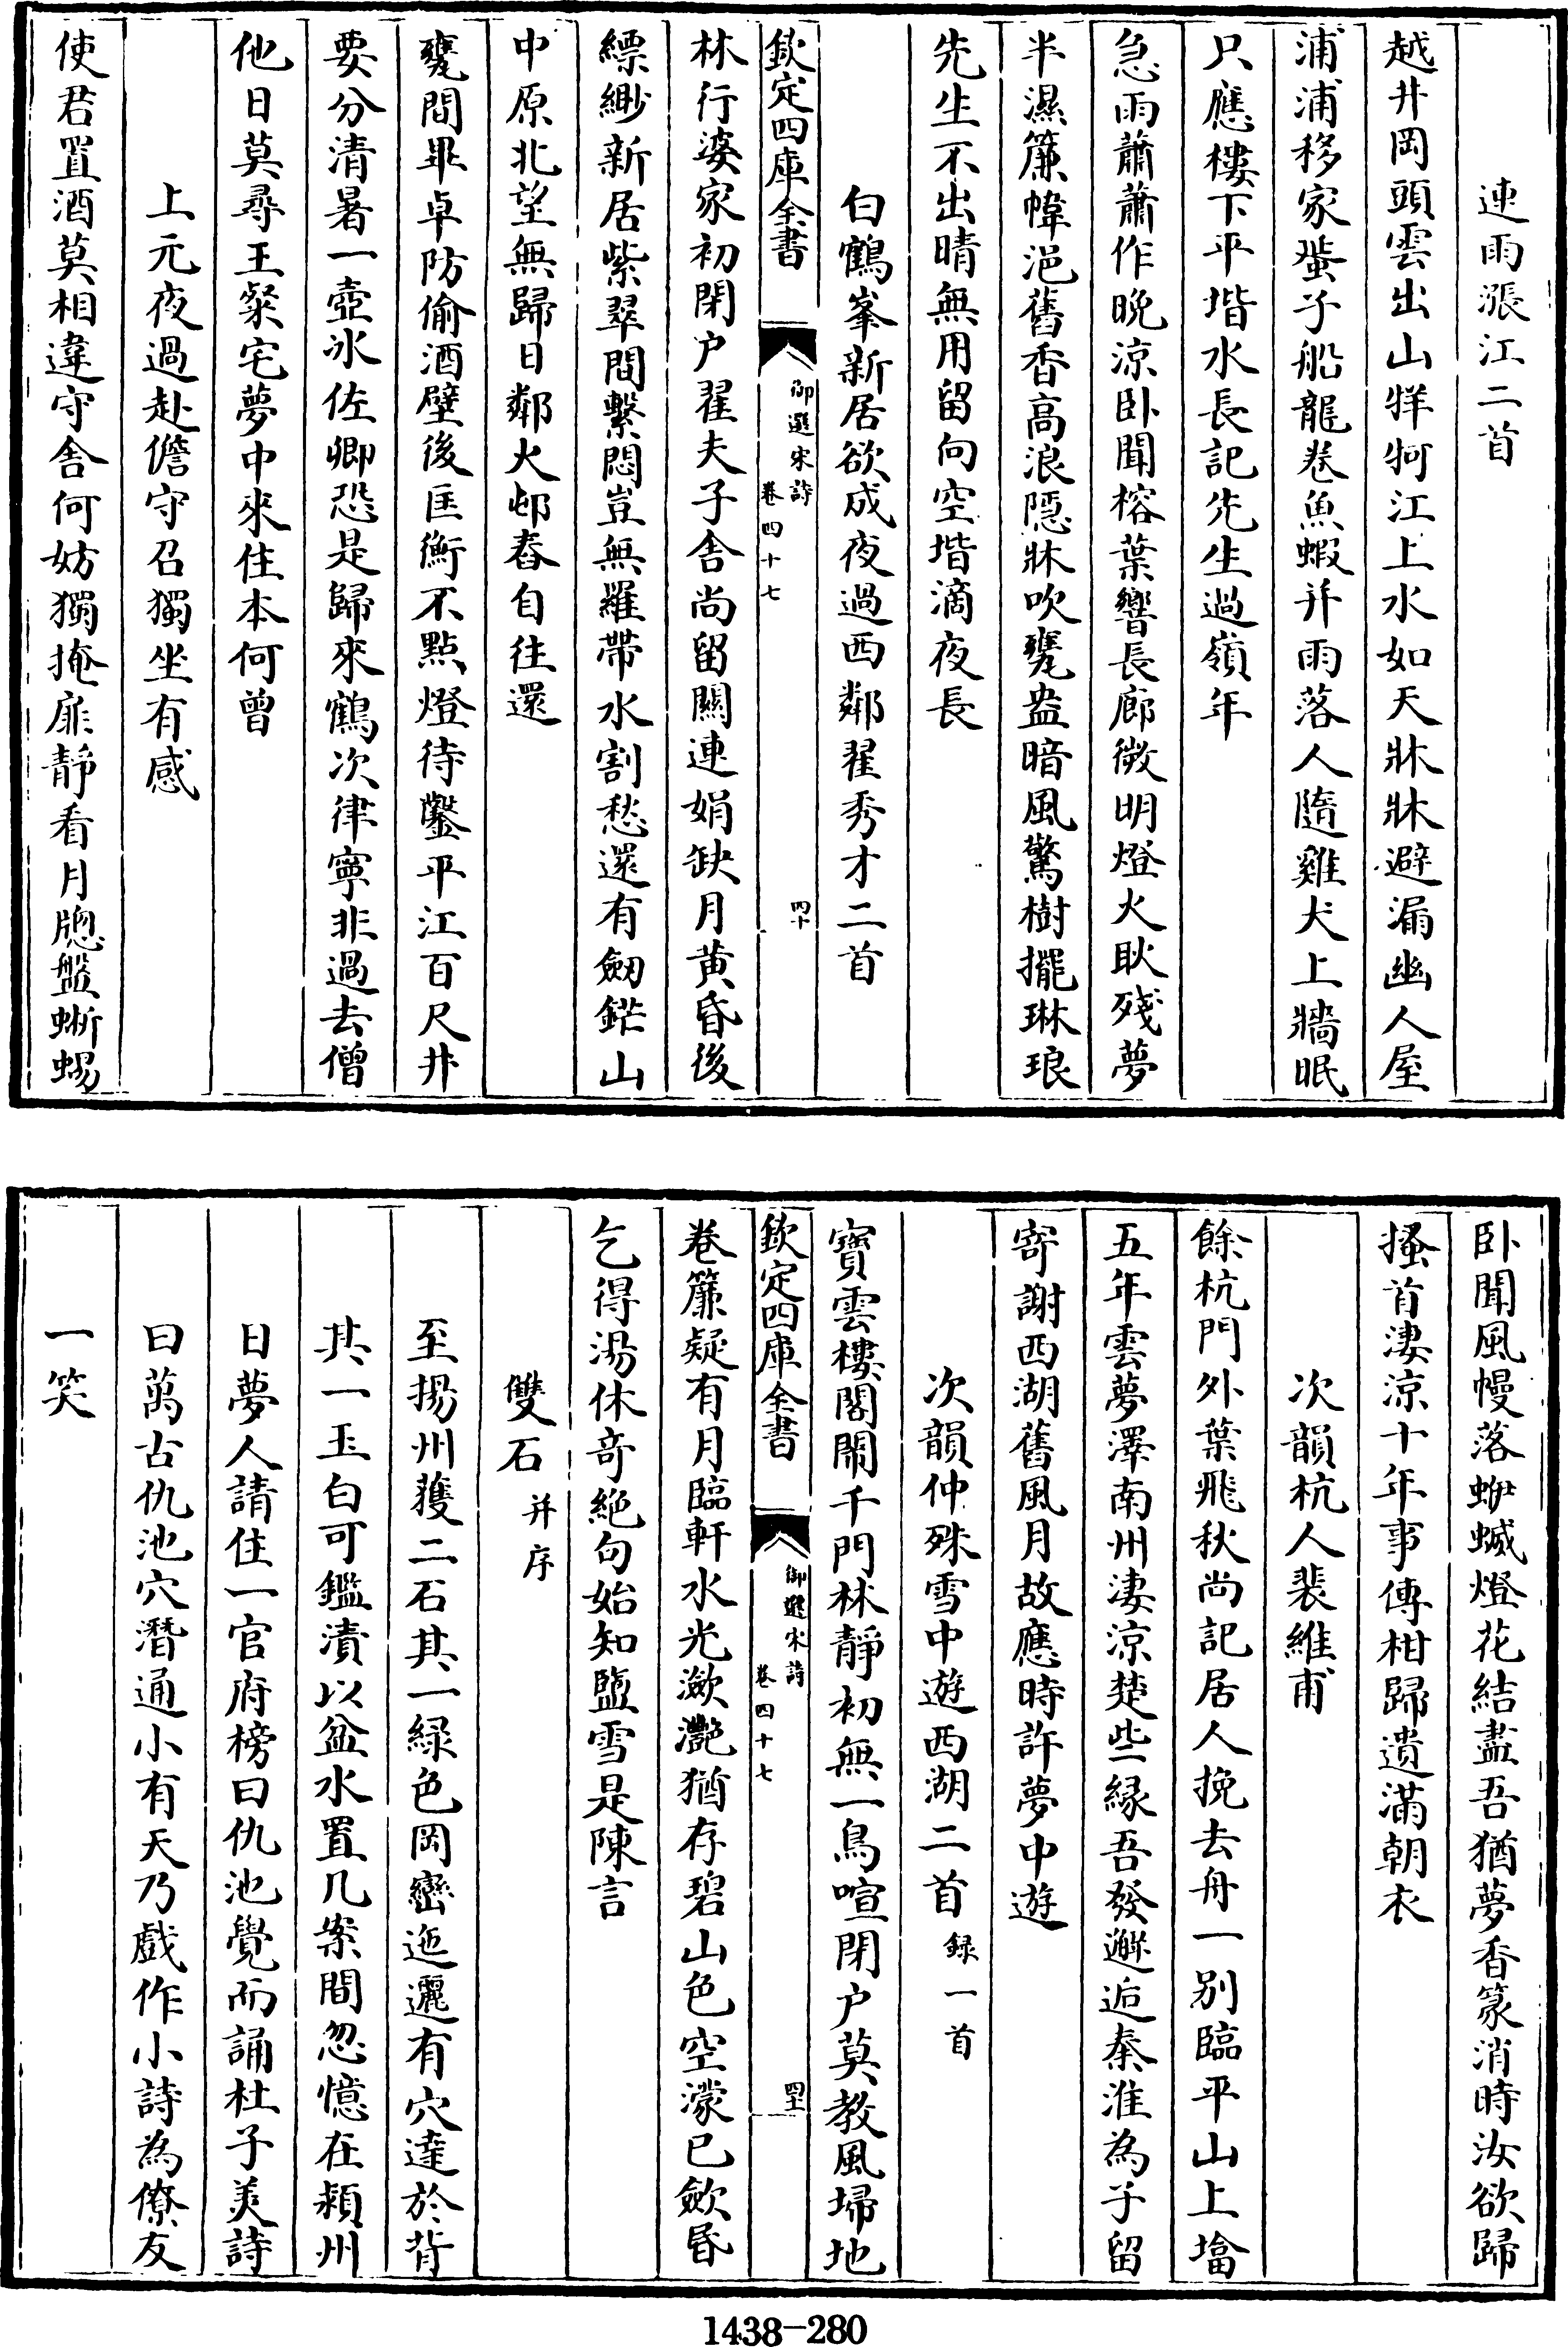 連雨漲江二首
越井岡頭雲出山牂牁江上水如天牀牀避漏幽人屋
浦浦移家蜑子船龍卷魚蝦并雨落人隨雞犬上牆眠
只應樓下平堦水長記先生過嶺年
急雨蕭蕭作晚涼卧聞榕葉響長廊微明燈火耿殘夢
半濕簾幃浥舊香高浪隱牀吹甕盎暗風驚樹擺琳琅
先生不出晴無用留向空堦滴夜長
白鶴峯新居欲成夜過西鄰翟秀才二首
欽定四庫全書
御選宋詩
卷四十七
四十
林行婆家初閉户翟夫子舍尚留關連娟缺月黄昏後
縹緲新居紫翠間繫悶豈無羅帶水割愁還有劒鋩山
中原北望無歸日鄰火邨舂自往還
甕間畢卓防偷酒壁後匡衡不點燈待鑿平江百尺井
要分清暑一壺冰佐卿恐是歸來鶴次律寧非過去僧
他日莫尋王粲宅夢中來往本何曾
上元夜過赴儋守召獨坐有感
使君置酒莫相違守舍何妨獨掩扉靜看月牕盤蜥蜴
卧聞風幔落蛜蝛燈花結盡吾猶夢香篆消時汝欲歸
搔首淒涼十年事傳柑歸遺滿朝衣
次韻杭人裴維甫
餘杭門外葉飛秋尚記居人挽去舟一别臨平山上塔
五年雲夢澤南州淒涼楚些緣吾發邂逅秦淮為子留
寄謝西湖舊風月故應時許夢中遊
次韻仲殊雪中遊西湖二首 録一首
寶雲樓閣鬧千門林靜初無一鳥喧閉户莫教風埽地
欽定四庫全書
御選宋詩
卷四十七
四十一
卷簾疑有月臨軒水光瀲灧猶存碧山色空濛已歛昏
乞得湯休奇絶句始知鹽雪是陳言
雙石 并序
至揚州獲二石其一緑色岡巒迤邐有穴達於背
其一玉白可鑑漬以盆水置几案間忽憶在潁州
日夢人請住一官府榜曰仇池覺而誦杜子美詩
曰萬古仇池穴潛通小有天乃戲作小詩為僚友
一笑
1438-280